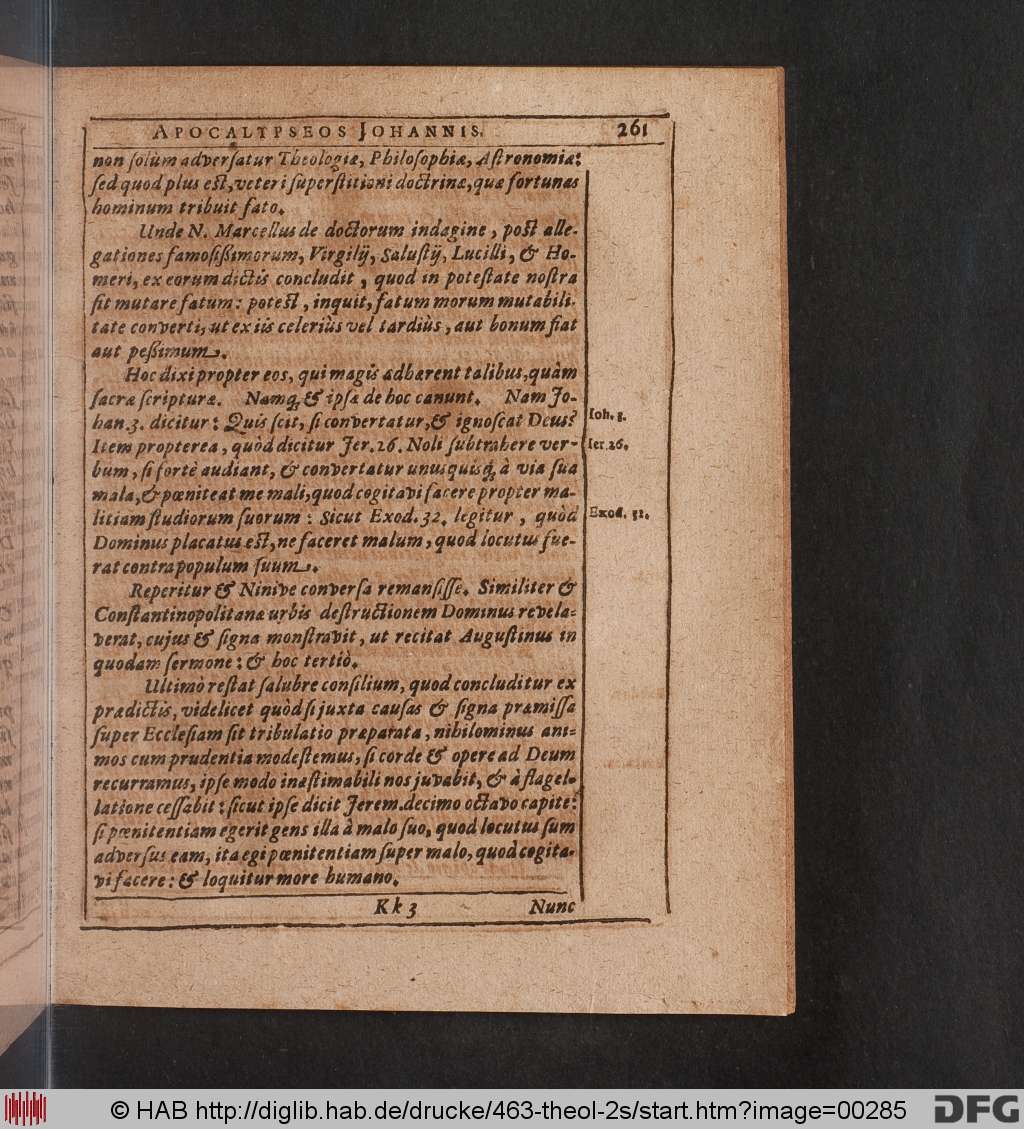 APOCALYPSEOS JOHANNIS. 261
non ſolùm adverſatur Theologiæ, Philoſophiæ, Aſtronomiæ:
ſed quod plus eſt, veteri ſuperſtitioni doctrinæ, quæ fortunas
hominum tribuit fato.
Unde N. Marcellus de doctorum indagine, poſt alle-
gationes famoſißimorum, Virgilij, Saluſtij, Lucilli, & Ho-
meri, ex eorum dictis concludit, quod in poteſtate noſtra
ſit mutare fatum: poteſt, inquit, fatum morum mutabili-
tate converti, ut ex iis celeriùs vel tardiùs, aut bonum fiat
aut peßimum.
Hoc dixi propter eos, qui magis adhærent talibus, quàm
ſacræ ſcripturæ. Namq́; & ipſa de hoc canunt. Nam Jo-
han. 3. dicitur: Quis ſcit, ſi convertatur, & ignoſcat Deus?
Ioh. 3.
Item propterea, quòd dicitur Jer. 26. Noli ſubtrahere ver-
Ier. 26.
bum, ſi fortè audiant, & convertatur unusquisq́; à via ſua
mala, & pœniteat me mali, quod cogitavi facere propter ma-
litiam ſtudiorum ſuorum: Sicut Exod. 32. legitur, quòd
Exod. 32.
Dominus placatus eſt, ne faceret malum, quod locutus fue-
rat contra populum ſuum.
Reperitur & Ninive converſa remanſiſſe. Similiter &
Conſtantinopolitanæ urbis deſtructionem Dominus revela-
verat, cujus & ſigna monſtravit, ut recitat Auguſtinus in
quodam ſermone: & hoc tertiò.
Ultimò reſtat ſalubre conſilium, quod concluditur ex
prædictis, videlicet quòd ſi juxta cauſas & ſigna præmiſſa
ſuper Eccleſiam ſit tribulatio præparata, nihilominus ani-
mos cum prudentia modeſtemus, ſi corde & opere ad Deum
recurramus, ipſe modo inæſtimabili nos juvabit, & à flagel-
latione ceſſabit: ſicut ipſe dicit Jerem. decimo octavo capite:
ſi pœnitentiam egerit gens illa à malo ſuo, quod locutus ſum
adverſus eam, ita egi pœnitentiam ſuper malo, quod cogita-
vi facere: & loquitur more humano.
Kk 3 Nunc
© HAB http://diglib.hab.de/drucke/463-theol-2s/start.htm?image=00285 DFG